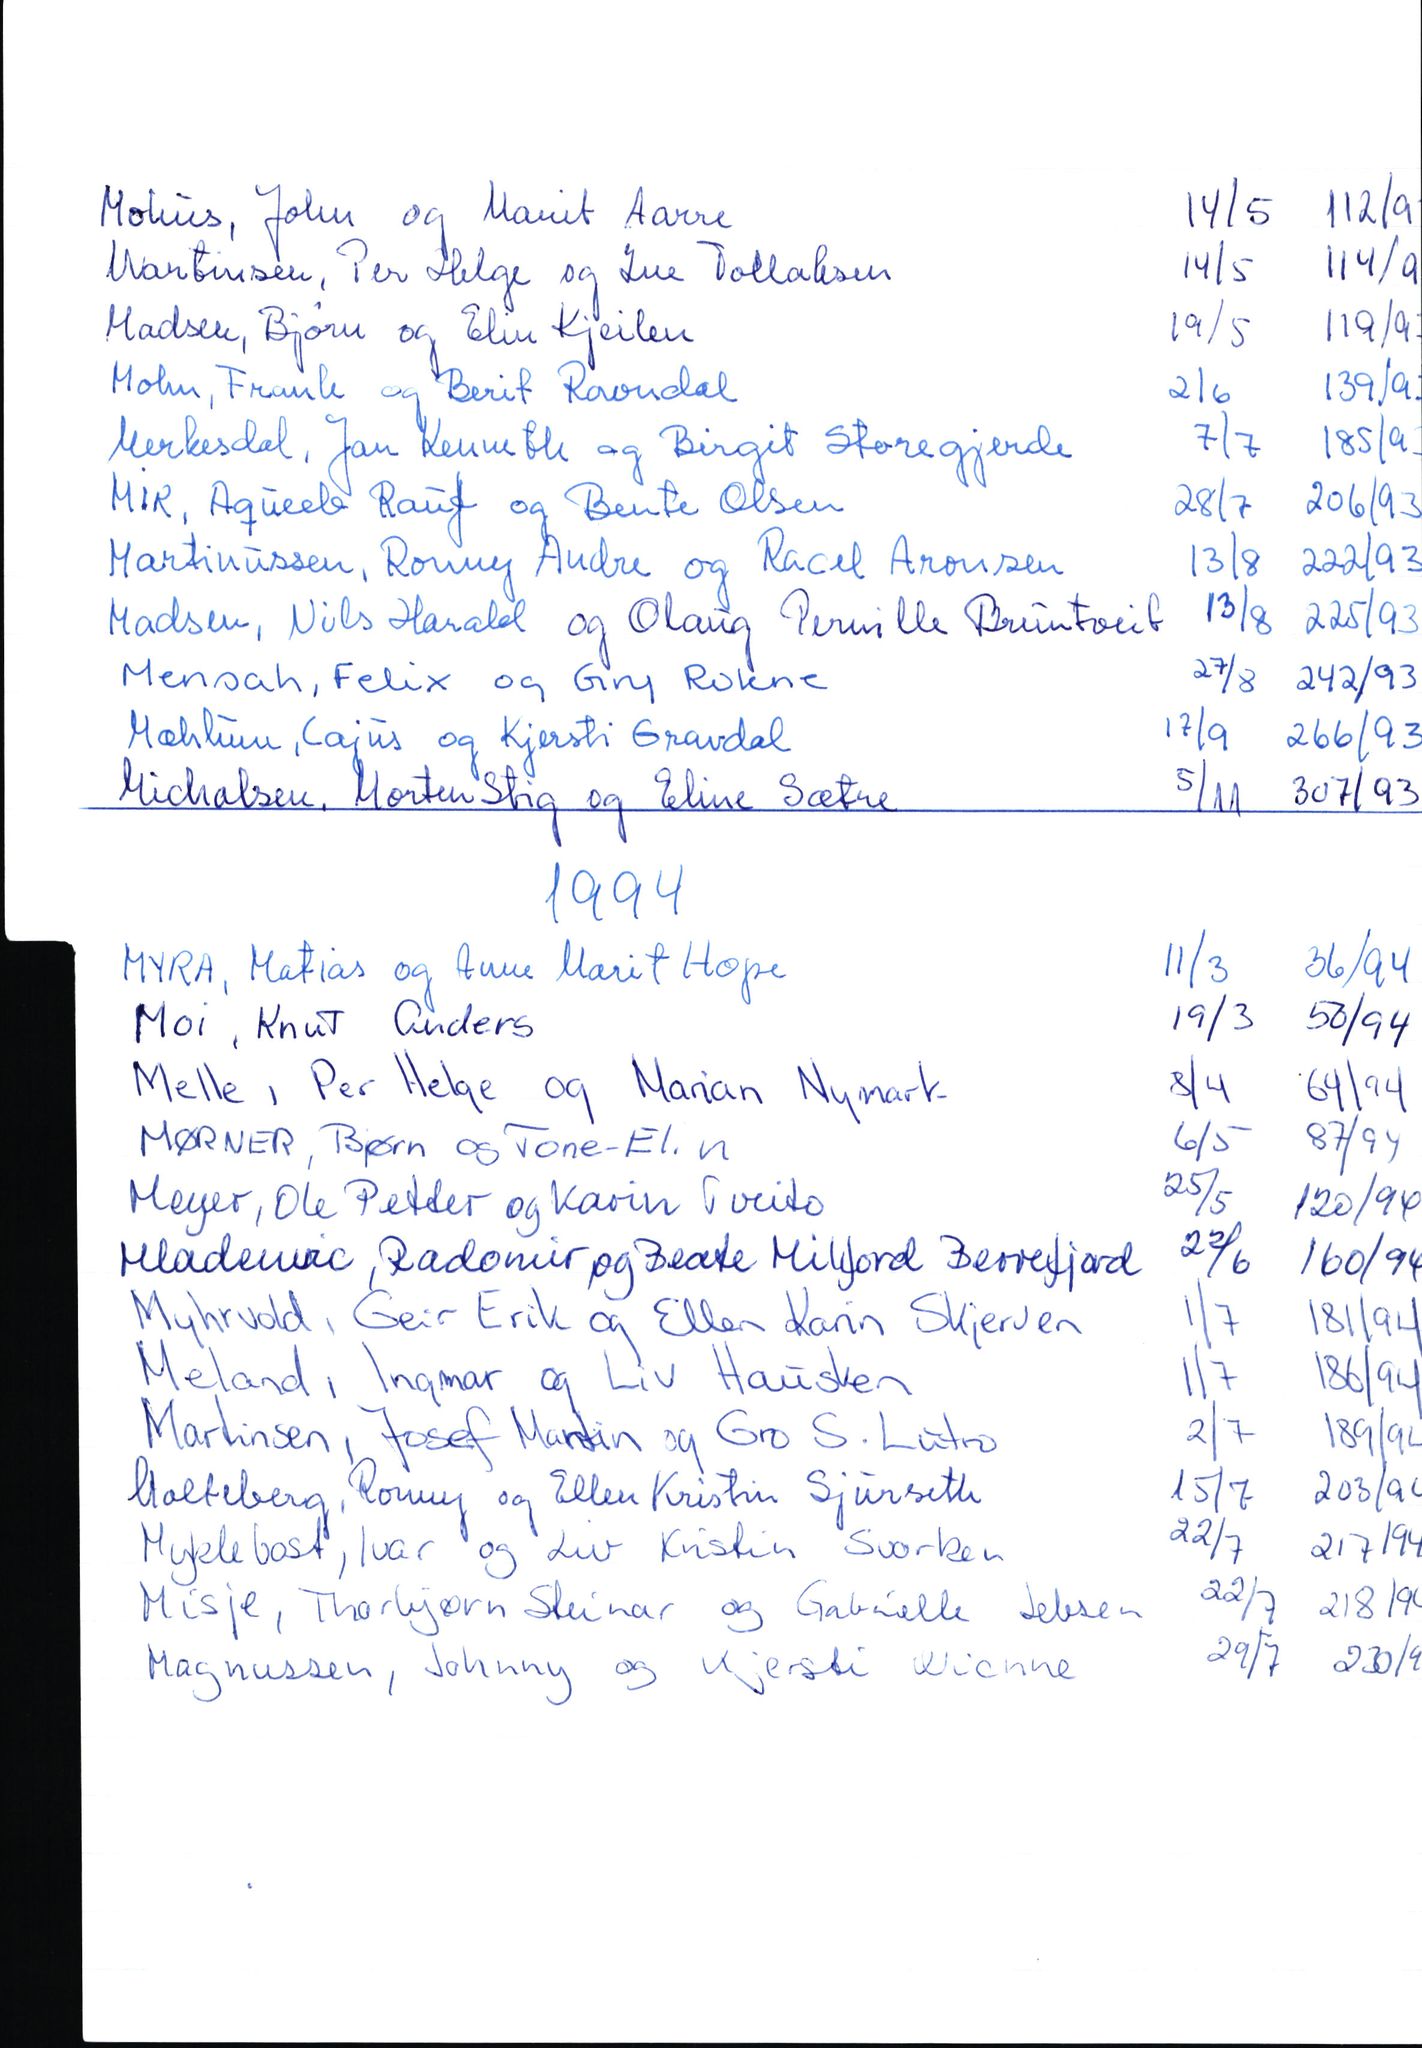 Mohus, John og Marit Aarre 14/5 112/9
Martinsen, Per Helge og Ine Tollaksen 14/5 114/9
Madsen, Bjørn og Elin Kjeilen 19/5 119/93
Mohn, Frank og Berit Rovondal 2/6 139/93
Merkesdal, Jan Kenneth og Birgit Storegjerde 7/7 185/93
MIR, Aqueeb Rauf og Bente Olsen 28/7 206/93
Martinussen, Ronny Andre og Racel Aronsen 13/8 222/93
Madsen, Nils Harald og Olaug Pernille Bruntveit 13/8 225/93
Mensah, Felix og Gry Rokne 27/8 242/93
Mæhlum, Cajus og Kjersti Gravdal 17/9 266/93
Michalsen, Morten Stig og Eline Sætre 5/11 307/93
1994
MYRA, Matias og Anne Marit Hope 11/3 36/94
Moi, Knut Anders 19/3 50/94
Melle, Per Helge og Marian Nymark 8/4 64/94
MØRNER, Bjørn og Tone-Elin 6/5 87/94
Meyer, Ole Petter og Karin Tveito 25/5 120/94
Radomir og Beate Milfjord Berrefjord 22/6 160/94
Myhrvold, Geir Erik og Ellen Karin Skjerven 1/7 181/94
Meland, Ingmar og Liv Hausken 1/7 186/94
Martinsen, Josef Martin og Gro S. Lutro 2/7 189/94
Molteberg, Ronny og Ellen Kristin Sjurseth 15/7 203/94
Myklebost, Ivar og Liv Kristin Svorken 22/7 217/94
Misje, Thorbjørn Steinar og Gabrielle Jebsen 22/7 218/94
Magnussen, Johnny og Kjersti Wianne 29/7 230/9